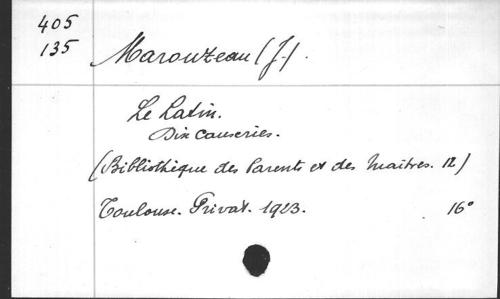 405
135
Marouzeau (J.)
Le Latin.
Dix causeries.
(Bibliothèque des Parents et des Maîtres. 12)
Toulouse. Privat. 1923. 16°